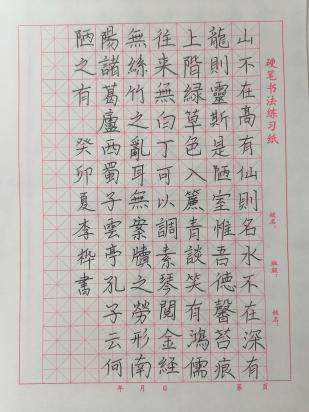 硬笔书法练习纸
山不在高有仙則名水不在深有
龍則靈斯是陋室惟吾德馨苔痕
上階緑草色入簾青談笑有鴻儒
往来無白丁可以調素琴閲金經
無絲竹之亂耳無案牘之勞形南
陽諸葛廬西蜀子雲亭孔子云何
陋之有 癸卯夏李桦書
年 月 日 第 页